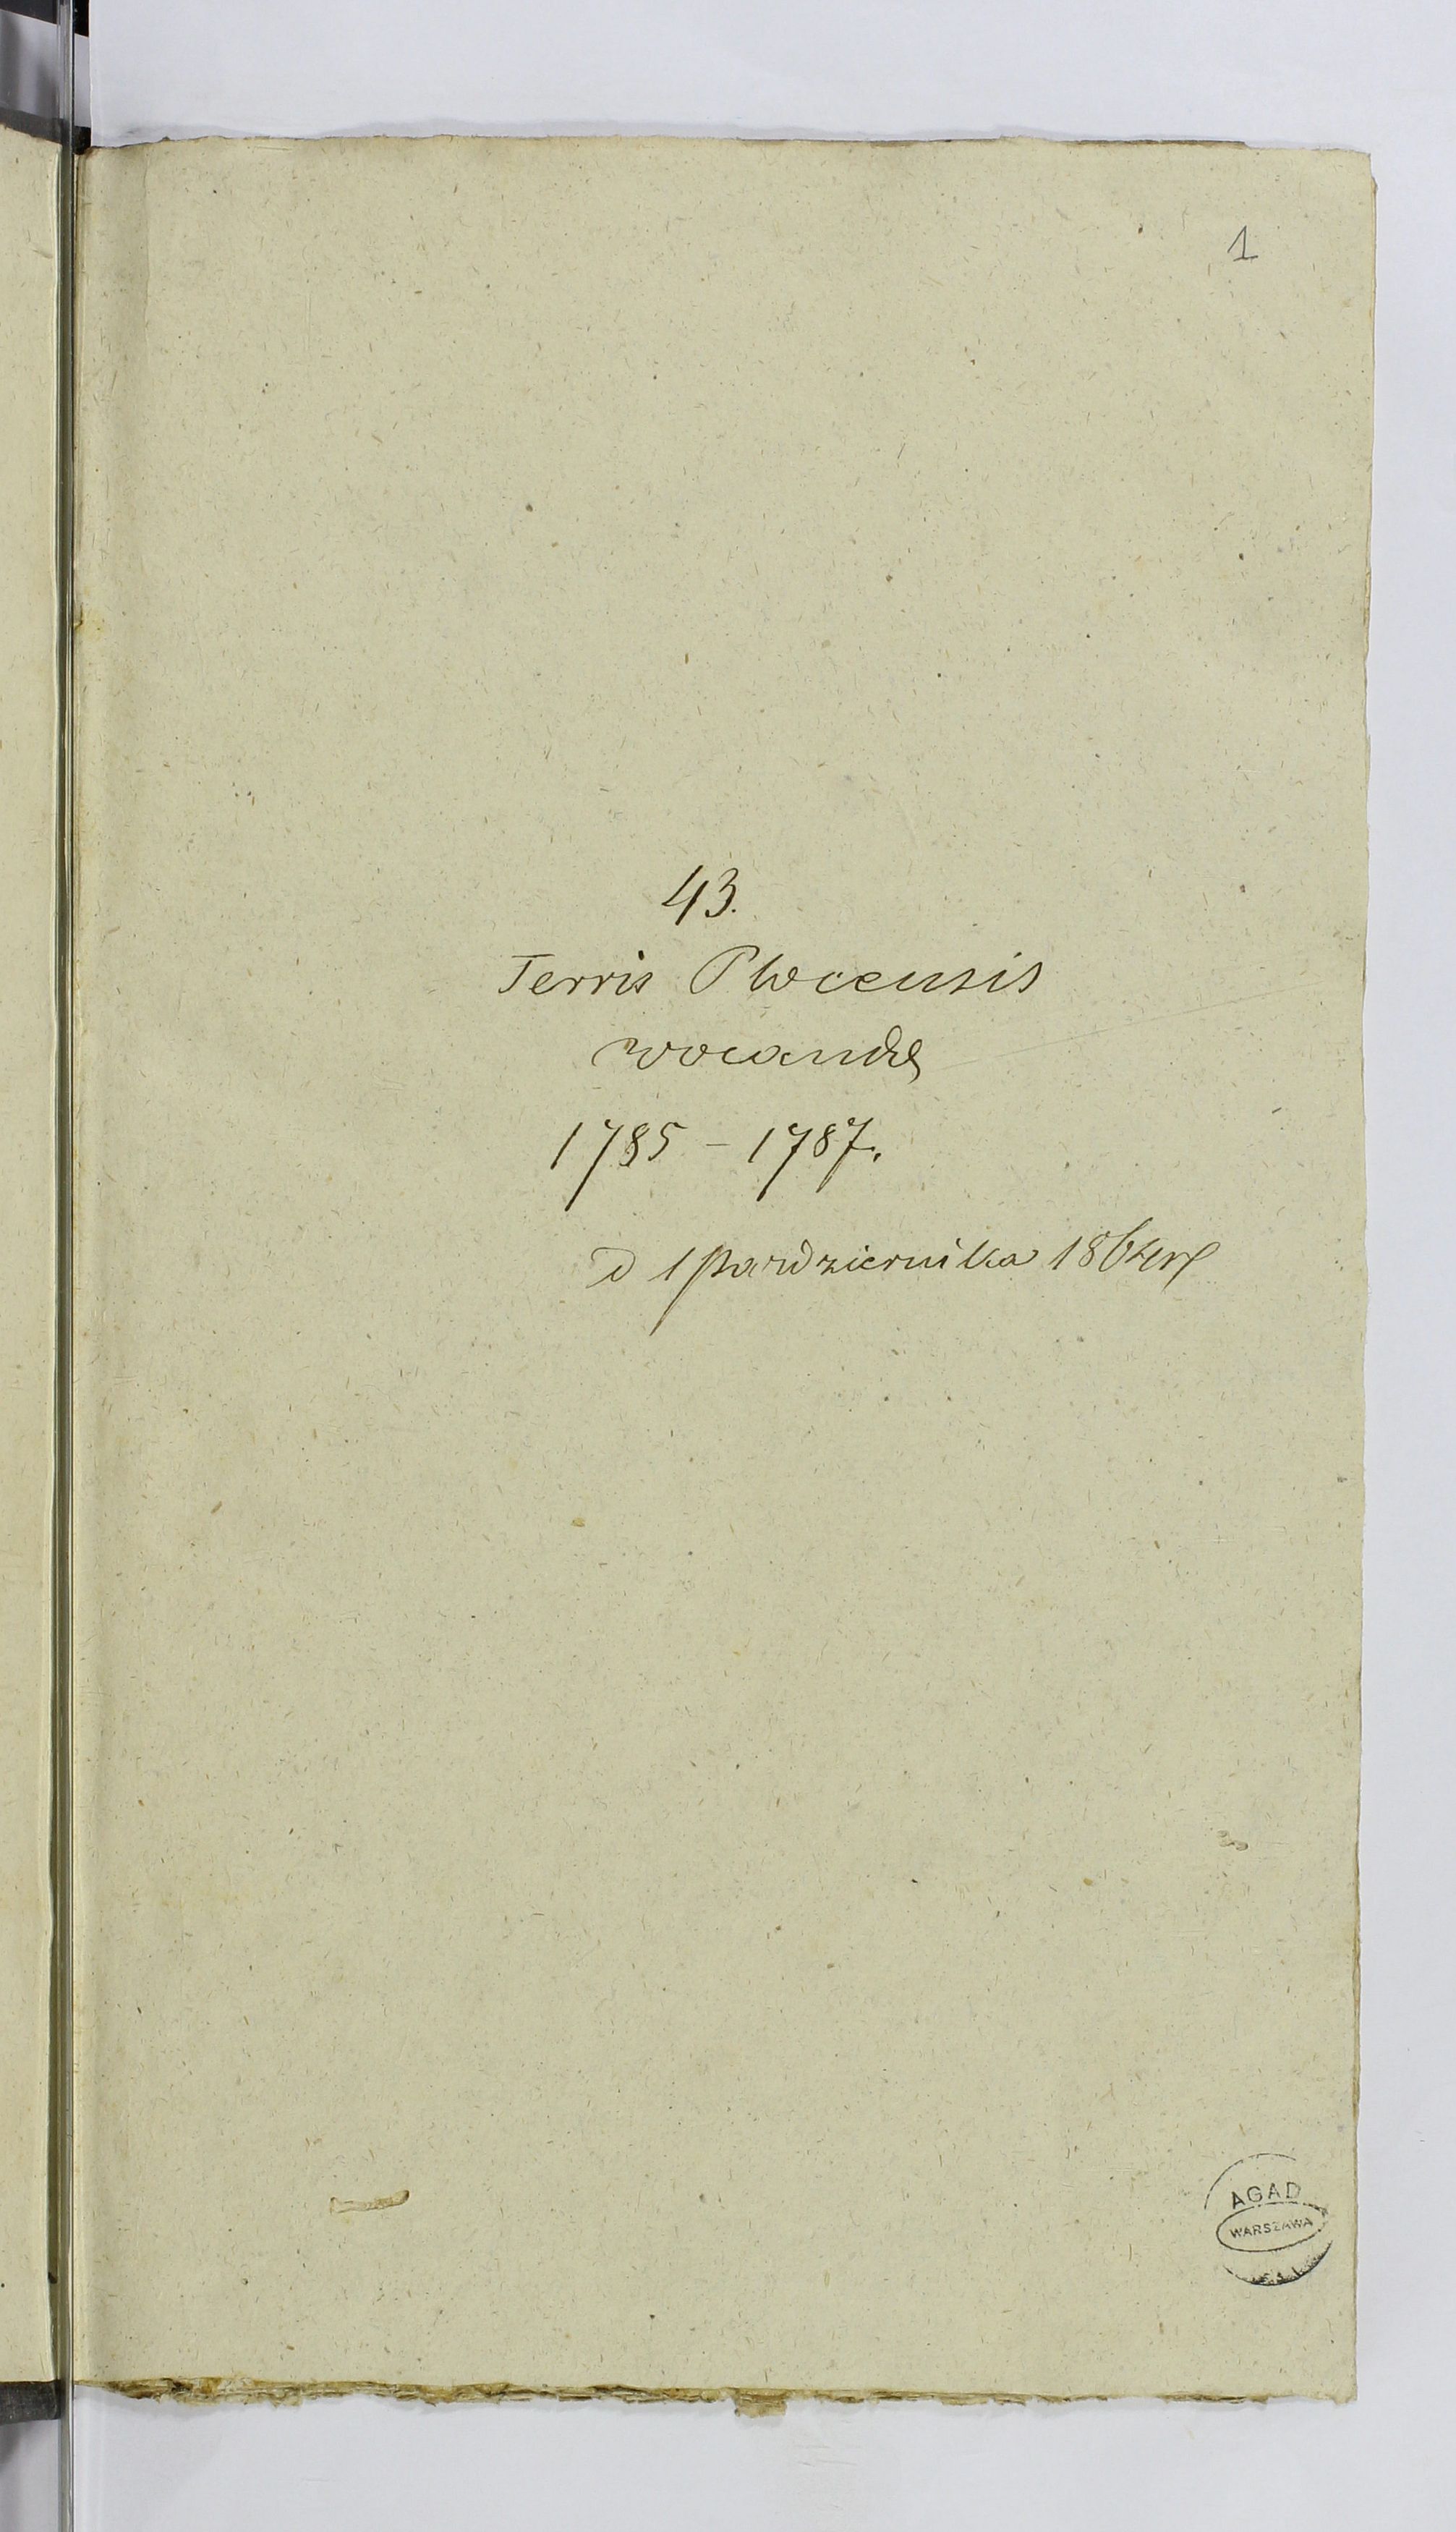 1
43.
Terris Plocensis
wocanda
1785 - 1787.
d 1 Pazdziernika 1864 r
AGAD
WARSZAWA